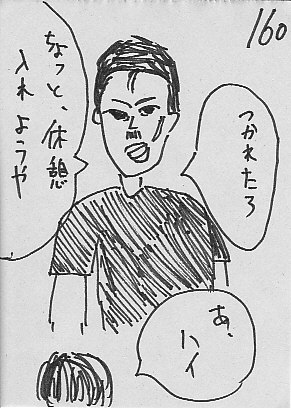 160
つかれたろ
ちょっと、休憩
入れようや
あ、
ハイ